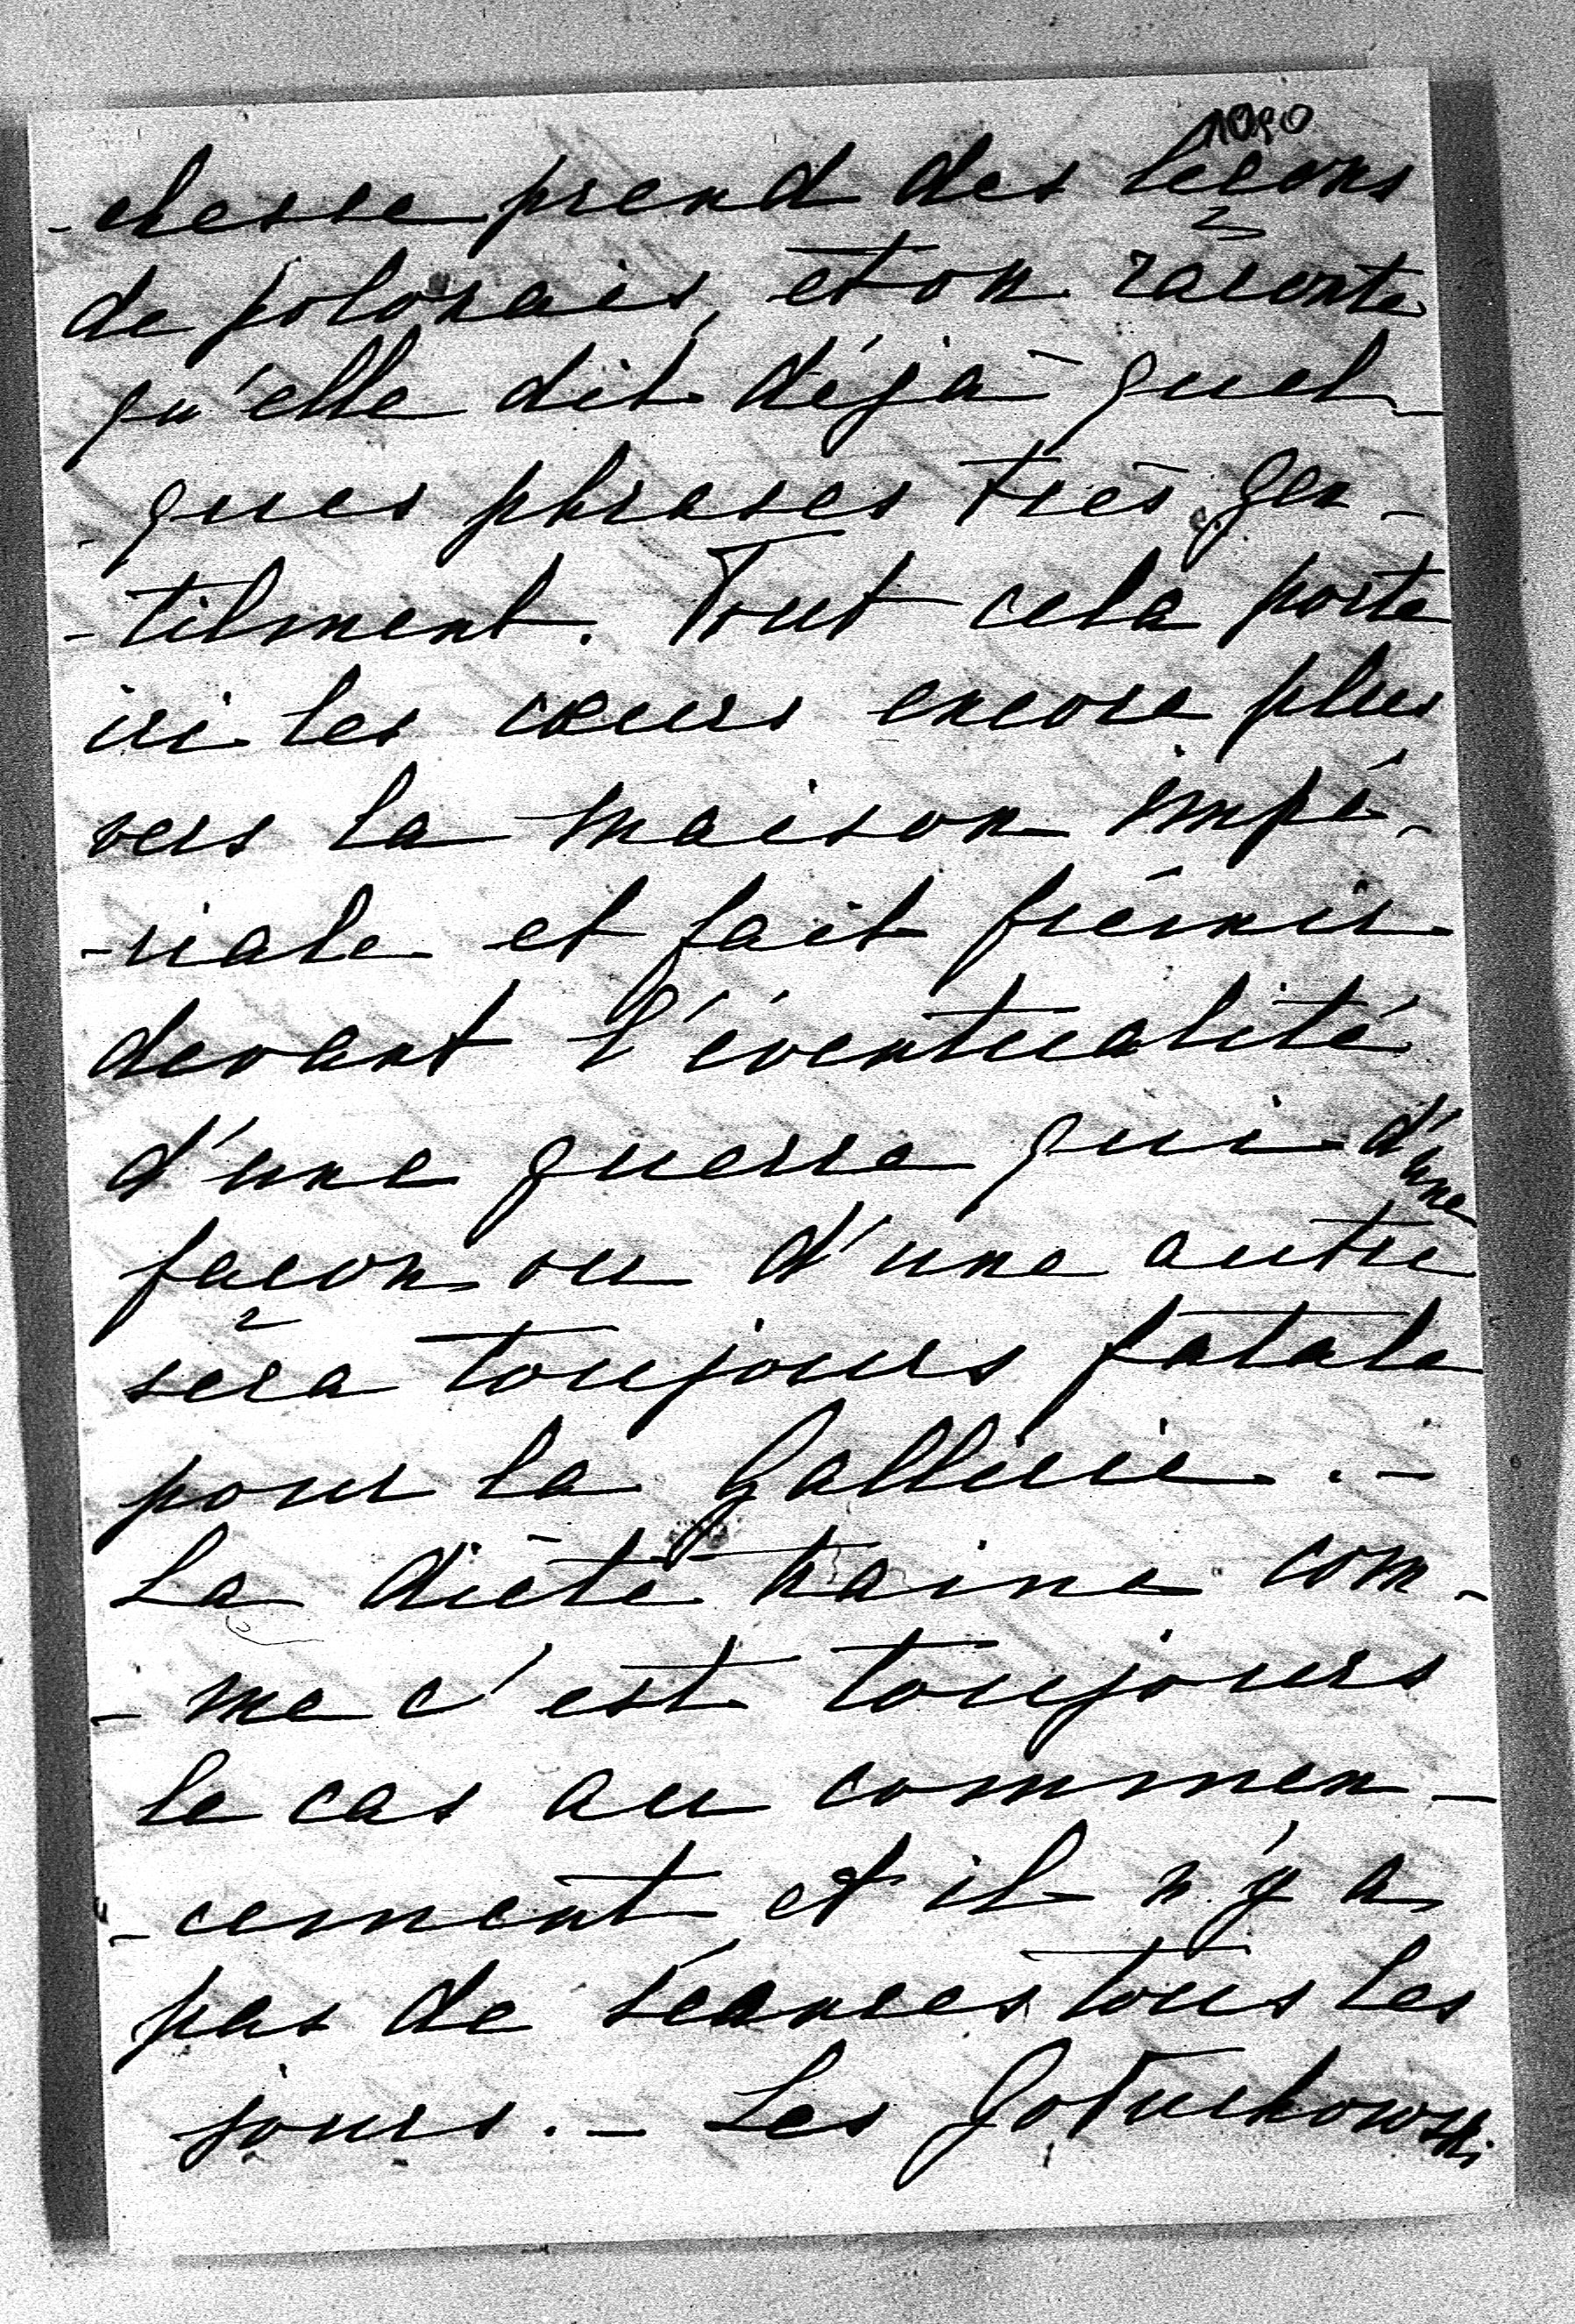 1090
-chesse prend des leçons
de polonais, et on raconte
qu'elle dit déjà quel-
-ques phrases très gen-
-tilment. Tout cela porte
ici les cœurs encore plus
vers la maison impé-
-riale et fait frémir
devant l'éventualité
d'une guerre qui d'une
façon ou d'une autre
sera toujours fatale
pour la Gallicie. -
La diète traine com-
- me c'est toujours
le cas au commen-
-cement et il n'y a
pas de séances tous les
jours. - Les Gołuchowski